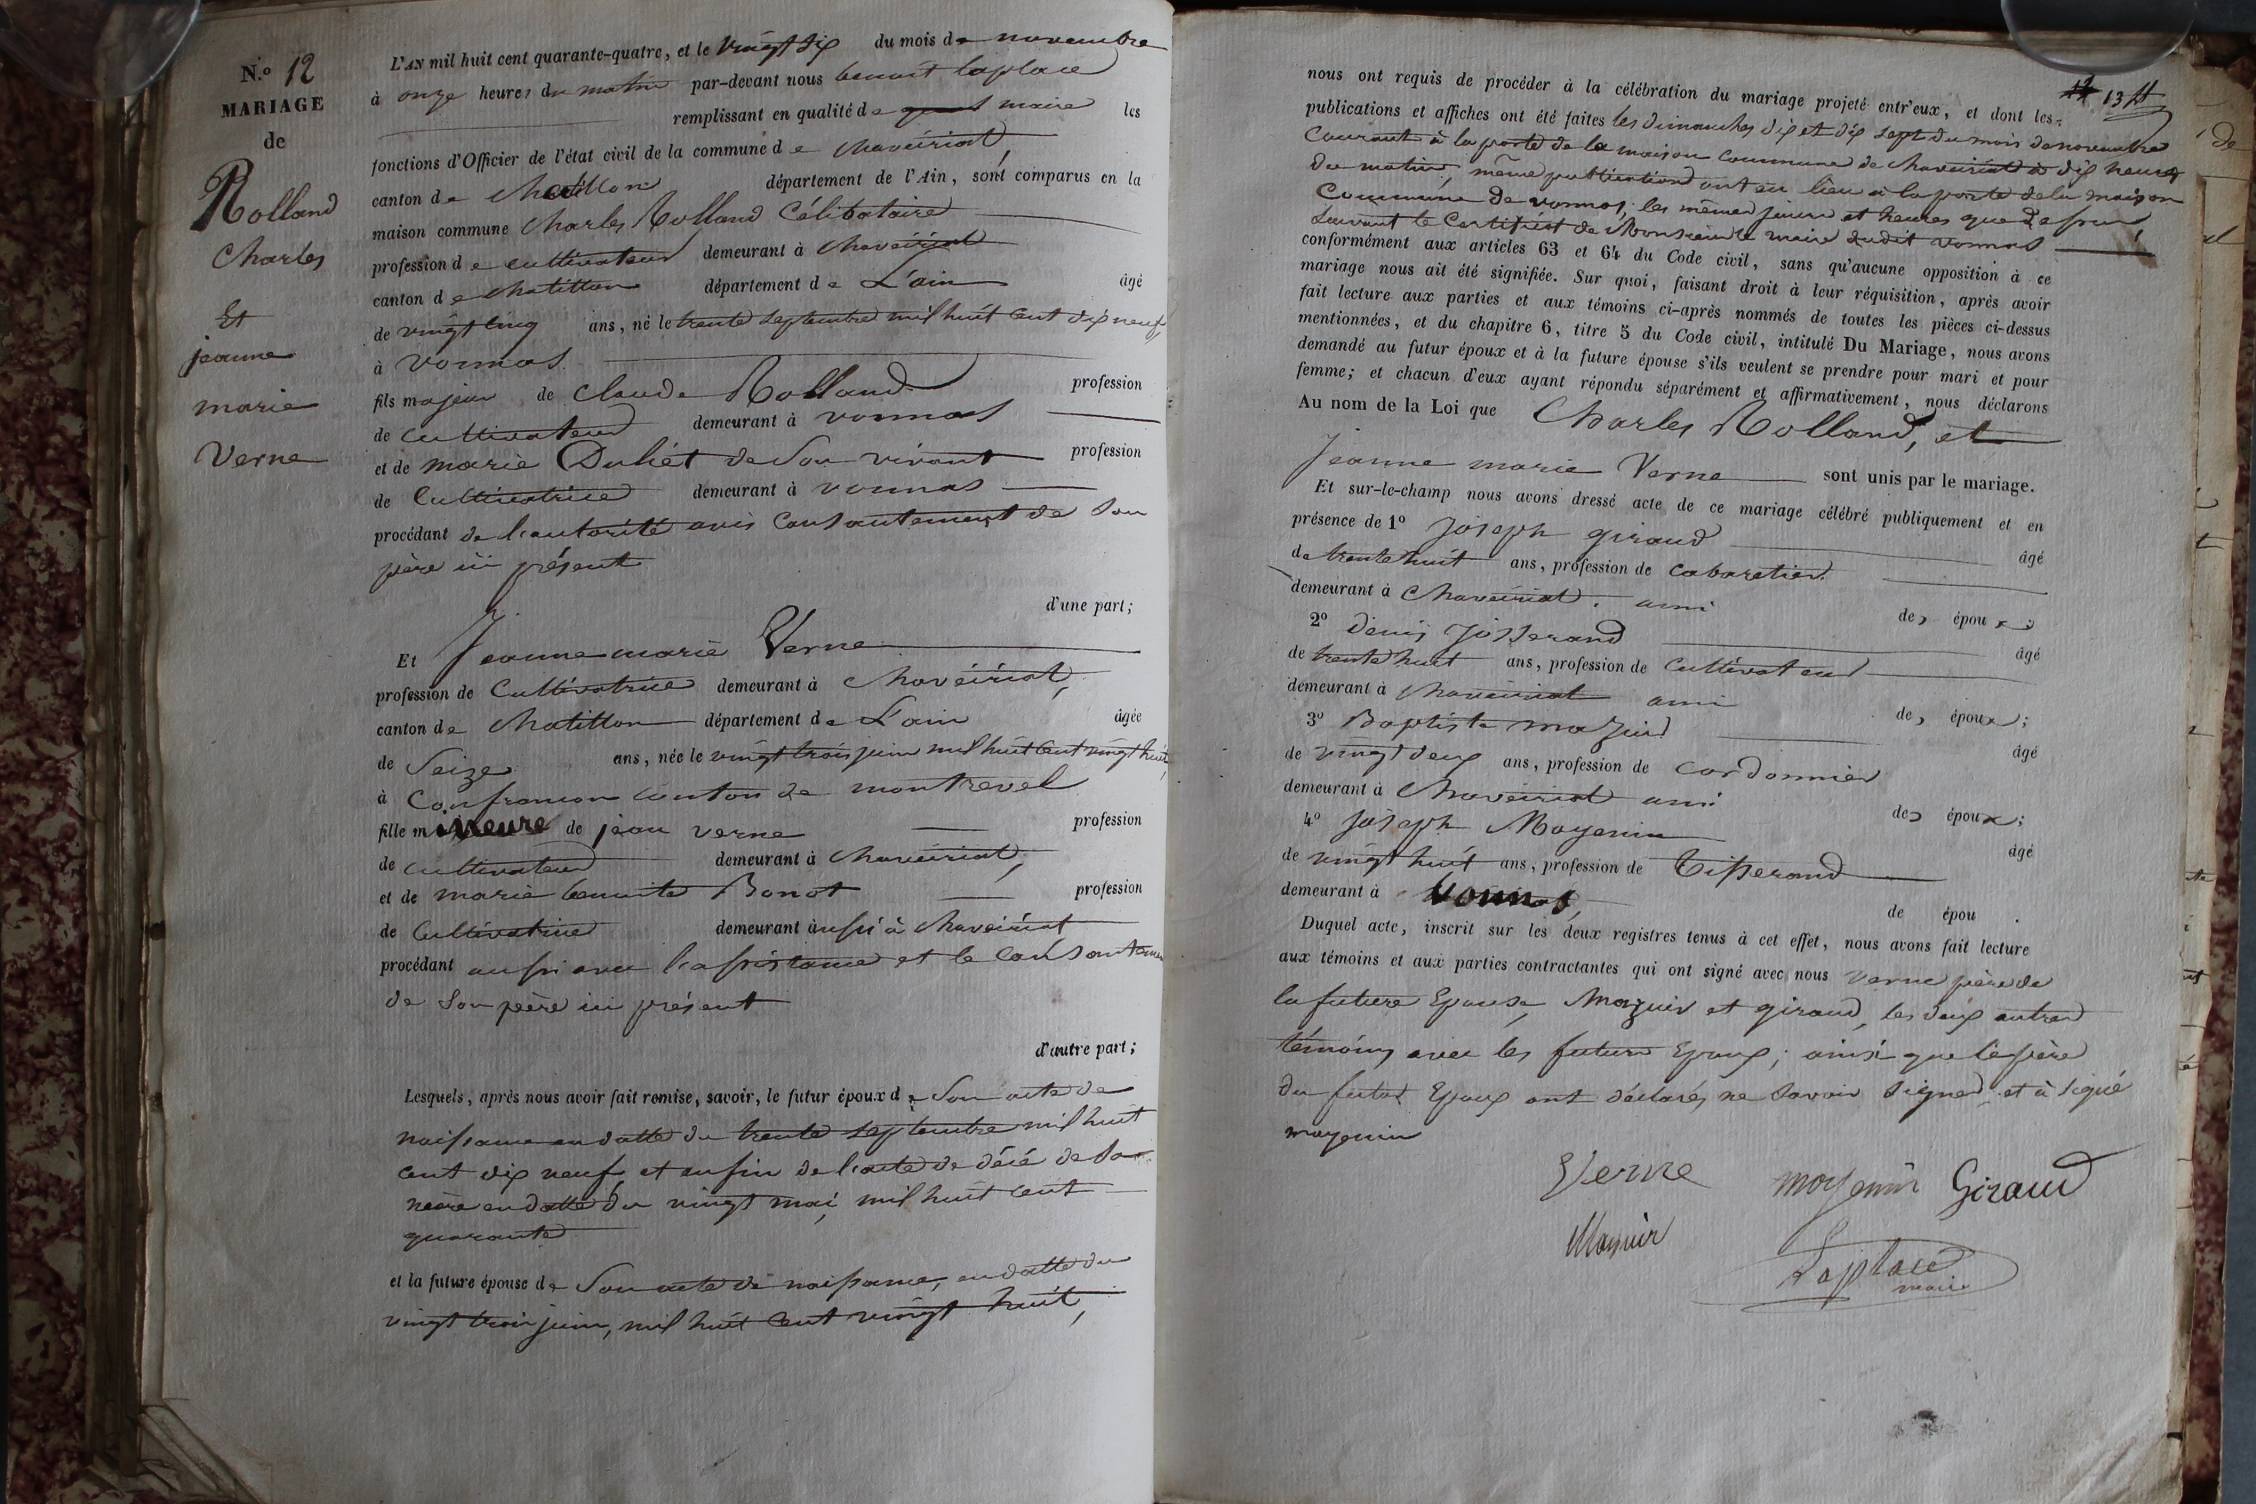 N.º 12
MARIAGE
de
Rolland
Charles
Et
jeanne
marie
Verne
L'AN mil huit cent quarante-quatre, et le vingt six du mois de novembre
à onze heures du matin par-devant nous benoit laplace
remplissant en qualité de maire les
fonctions d'Officier de l'état civil de la commune de chaveiriat,
canton de chatillon département de l'Ain, sont comparus en la
maison commune Charles Rolland Célibataire
profession de cultivateur demeurant à chaveiriat
canton de chatillon département de L'ain âgé
de vingt cinq ans, né le trente septembre mil huit cent dix neuf
à vonnas
fils majeur de Claude Rolland profession
de cultivateur demeurant à vonnas
et de marie Duliet de son vivant profession
de Cultivatrice demeurant à vonnas
procédant de l'autorité avis consantement de son
père ici présent
d'une part;
Et Jeanne marie Verne
profession de Cultivatrice demeurant à chaveiriat,
canton de chatillon département de L'ain âgée
de Seize ans, née le vingt trois juin mil huit cent vingt huit,
à Confrancon canton de montrevel
fille mineure de jean verne profession
de cultivateur demeurant à chaveiriat,
et de marie benoite Bonot profession
de Cultivatrice demeurant aussi à chaveiriat
procédant aussi avec l'assistance et le consantement
de son père ici présent
d'autre part;
Lesquels, après nous avoir fait remise, savoir, le futur époux de Son acte de
naissance en datte du trente septembre mil huit
cent dix neuf, et enfin de l'acte de décé de sa
mère en datte du vingt mai, mil huit cent
quarante
et la future épouse de Son acte de naissance, en datte du
vingt trois juin, mil huit cent vingt huit,
13
nous ont requis de procéder à la célébration du mariage projeté entr'eux, et dont les
publications et affiches ont été faites les dimanches dix et dix sept du mois de novembre
Courant à la porte de la maison commune de chaveiriat à dix heures
du matin, même publication ont eu lieu à la porte de la maison
Commune de vonnas, les même jours et heures que dessus,
suivant le Certificat de Monsieur le maire dudit vonnas
conformément aux articles 63 et 64 du Code civil, sans qu'aucune opposition à ce
mariage nous ait été signifiée. Sur quoi, faisant droit à leur réquisition, après avoir
fait lecture aux parties et aux témoins ci-après nommés de toutes les pièces ci-dessus
mentionnées, et du chapitre 6, titre 5 du Code civil, intitulé Du Mariage, nous avons
demandé au futur époux et à la future épouse s'ils veulent se prendre pour mari et pour
femme; et chacun d'eux ayant répondu séparément et affirmativement, nous déclarons
Au nom de la Loi que Charles Rolland, et
Jeanne marie Verne sont unis par le mariage.
Et sur-le-champ nous avons dressé acte de ce mariage célébré publiquement et en
présence de 1º Joseph giraud âgé
de trente huit ans, profession de cabaretier.
demeurant à Chaveiriat. ami des époux;
2º Denis Josserand âgé
de trente huit ans, profession de Cultivateur
demeurant à chaveiriat ami des époux;
3º Baptiste mazuir âgé
de vingt deux ans, profession de cordonnier
demeurant à Chaveiriat ami des époux;
4º Joseph Moyenin âgé
de vingt huit ans, profession de Tisserand
demeurant à vonnas, de épou .
Duquel acte, inscrit sur les deux registres tenus à cet effet, nous avons fait lecture
aux témoins et aux parties contractantes qui ont signé avec nous verne père de
la future Epouse, Mazuir et giraud, les deux autres
témoins avec les futurs Epoux; ainsi que le père
du futur Epoux ont déclarés ne savoir signer et à signé
moyenin
Verne moyenin Giraud
Mazuir
Laplace
maire